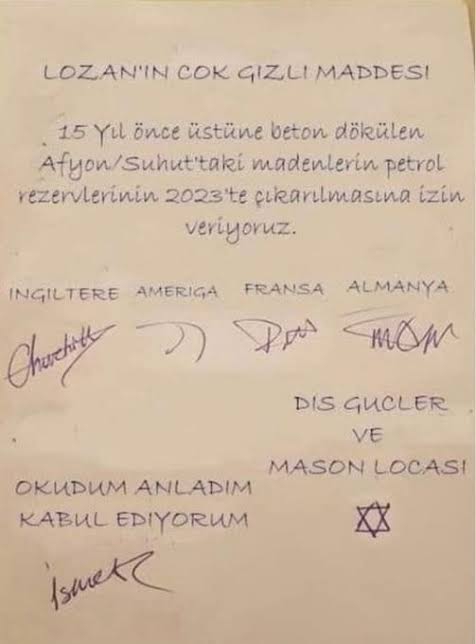 LOZAN'IN COK GIZLI MADDESI
15 Yıl önce üstüne beton dökülen
Afyon/Suhut'taki madenlerin petrol
rezervlerinin 2023'te çıkarılmasına izin
veriyoruz.
INGILTERE AMERIGA FRANSA ALMANYA
Churchill
DIS GUCLER
VE
MASON LOCASI
OKUDUM ANLADIM
KABUL EDIYORUM
ismet